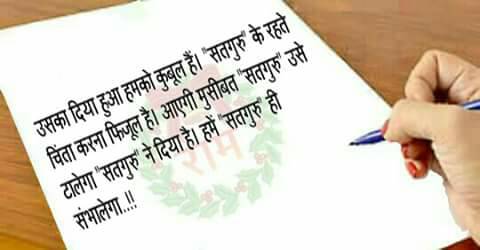 उसका दिया हुआ हमको कुबूल हैं। "सतगुरु" के रहते
चिंता करना फिजूल है। आएगी मुसीबत "सतगुरु" उसे
टालेगा "सतगुरु" ने दिया है। हमें "सतगुरु" ही
संभालेगा..!!
राम